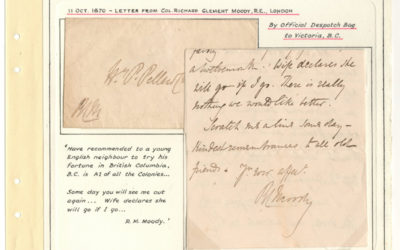 11 OCT. 1870 - LETTER FROM COL. RICHARD CLEMENT MOODY, R.E., LONDON
By Official Despatch Bag
to Victoria, B.C.
Wm. P. Pellew
a Wife declares she
will go if I go. There is really
nothing we would like better.
Scratch me a line some day -
Kindest remembrances to all old
friends. Yr ever affect.
R Moody
'Have recommended to a young
English neighbour to try his
fortune in British Columbia,
B.C. is A1 of all the Colonies...
Some day you will see me out
again... Wife declares she
will go if I go...'
R.M. Moody.